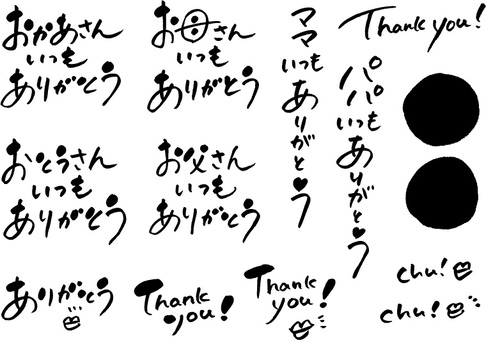 おかあさん
いつも
ありがとう
お母さん
いつも
ありがとう
ママいつもありがとう
パパいつもありがとう
Thank you!
おとうさん
いつも
ありがとう
お父さん
いつも
ありがとう
ありがとう
Thank
you!
Thank
you!
chu!
chu!